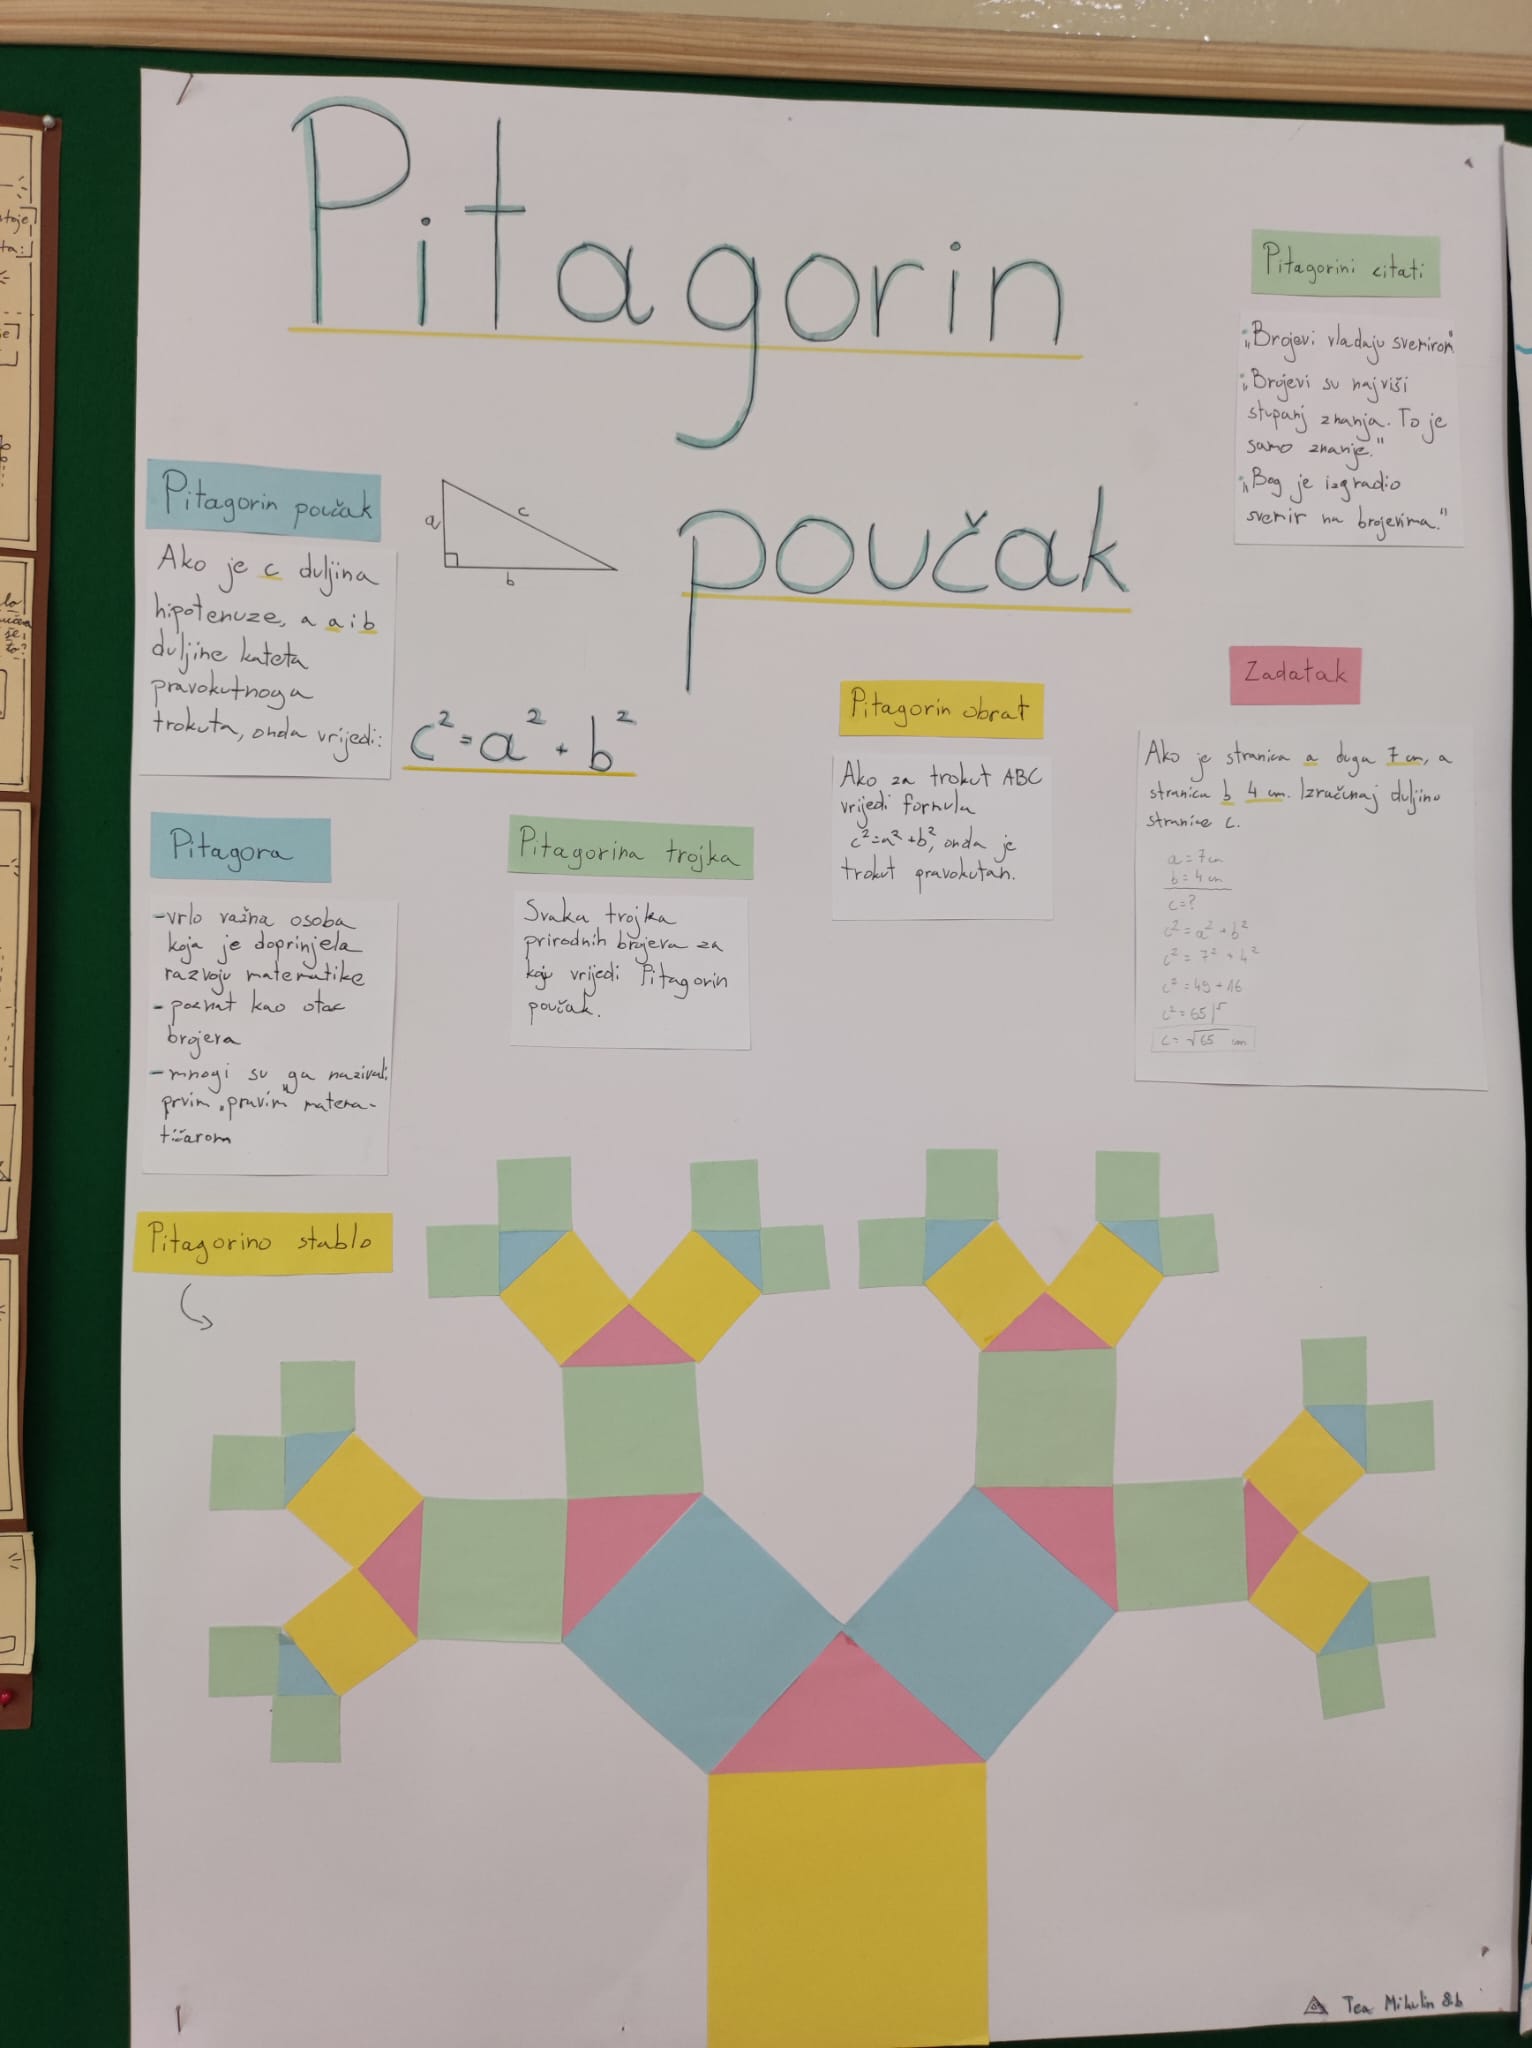 Pitagorin
poučak
Pitagorini citati
„Brojevi vladaju svemirom"
„Brojevi su najviši
stupanj znanja. To je
samo znanje."
„Bog je izgradio
svemir na brojevima."
Pitagorin poučak
Ako je c duljina
hipotenuze, a a i b
duljine kateta
pravokutnoga
trokuta, onda vrijedi:
a
c
b
c² = a² + b²
Pitagorin obrat
Ako za trokut ABC
vrijedi formula
c²=a²+b², onda je
trokut pravokutan.
Zadatak
Ako je stranica a duga 7 cm, a
stranica b 4 cm. Izračunaj duljinu
stranice c.
a = 7cm
b = 4 cm
c=?
c² = a² + b²
c² = 7² + 4²
c² = 49 + 16
c² = 65 /√
c = √65 cm
Pitagora
- vrlo važna osoba
koja je doprinjela
razvoju matematike
- poznat kao otac
brojeva
- mnogi su ga nazivali
prvim „pravim" matema-
tičarom
Pitagorina trojka
Svaka trojka
prirodnih brojeva za
koju vrijedi Pitagorin
poučak.
Pitagorino stablo
Tea Mikulin 8.b